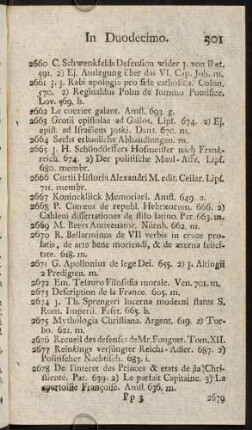 In Duodecimo. 501
2660 C. Schwenkfelds Defension wider J. von
591. 2) Ej. Auslegung über das VI. Cap. Joh. m.
2661 J. J. Rabi apologia pro fide catholica. Colon.
570. 2) Reginaldus Polus de summo Pontifice.
Lov. 569. b.
2662 Le courier galant. Amst. 693. g.
2663 Grotii epistolae ad Gallos. Lips. 674. 2) Ej.
epist. ad Israelem Joski. Dant. 670. m.
2664 Sechs erbauliche Abhandlungen. m.
2665 J. H. Schöndörffers Hofmeister nach Frank-
reich. 674. 2) Der politische Maul-Affe. Lips.
680. membr.
2666 Curtii Historia Alexandri M. edit. Cellar. Lips.
711. membr.
2667 Memoriael. Amst. 649. 2.
2668 P. Cunaeus de republ. Hebraeorum. 666. 2)
Cahleni dissertationes de stilo latino. Par. 663. m.
2669 M. Beers Nürnb. 662. m.
2670 R. Bellarminus de VII verbis in cruce pro-
latis, de arte bene moriendi, & de aeterna felici-
tate. 618. m.
2671 G. Apollonius de lege Dei. 655. 2) J. Altingii
2 Predigten. m.
2672 Em. Tesauro Filosofia morale. Ven. 701. m.
2673 Description de la France. 605. m.
2674 J. Th. Sprengeri lucerna moderni status S.
Rom. Imperii. Frft. 665. b.
2675 Mythologia Christiana. Argent. 619. 2) Tur-
bo. 621. m.
2676 Recueil des defenses de Mr. Fouquet. Tom. XII.
2677 Reinkings verjüngter Reichs-Adler. 687. 2)
Politischer Nachtisch. 683. i.
2678 De l'interet des Princes & etats de la Chri-
stienté. Par. 639. 2) Le parfait Capitaine. 3) La
Françoise. Amst 636. m.
Pp 3 2679